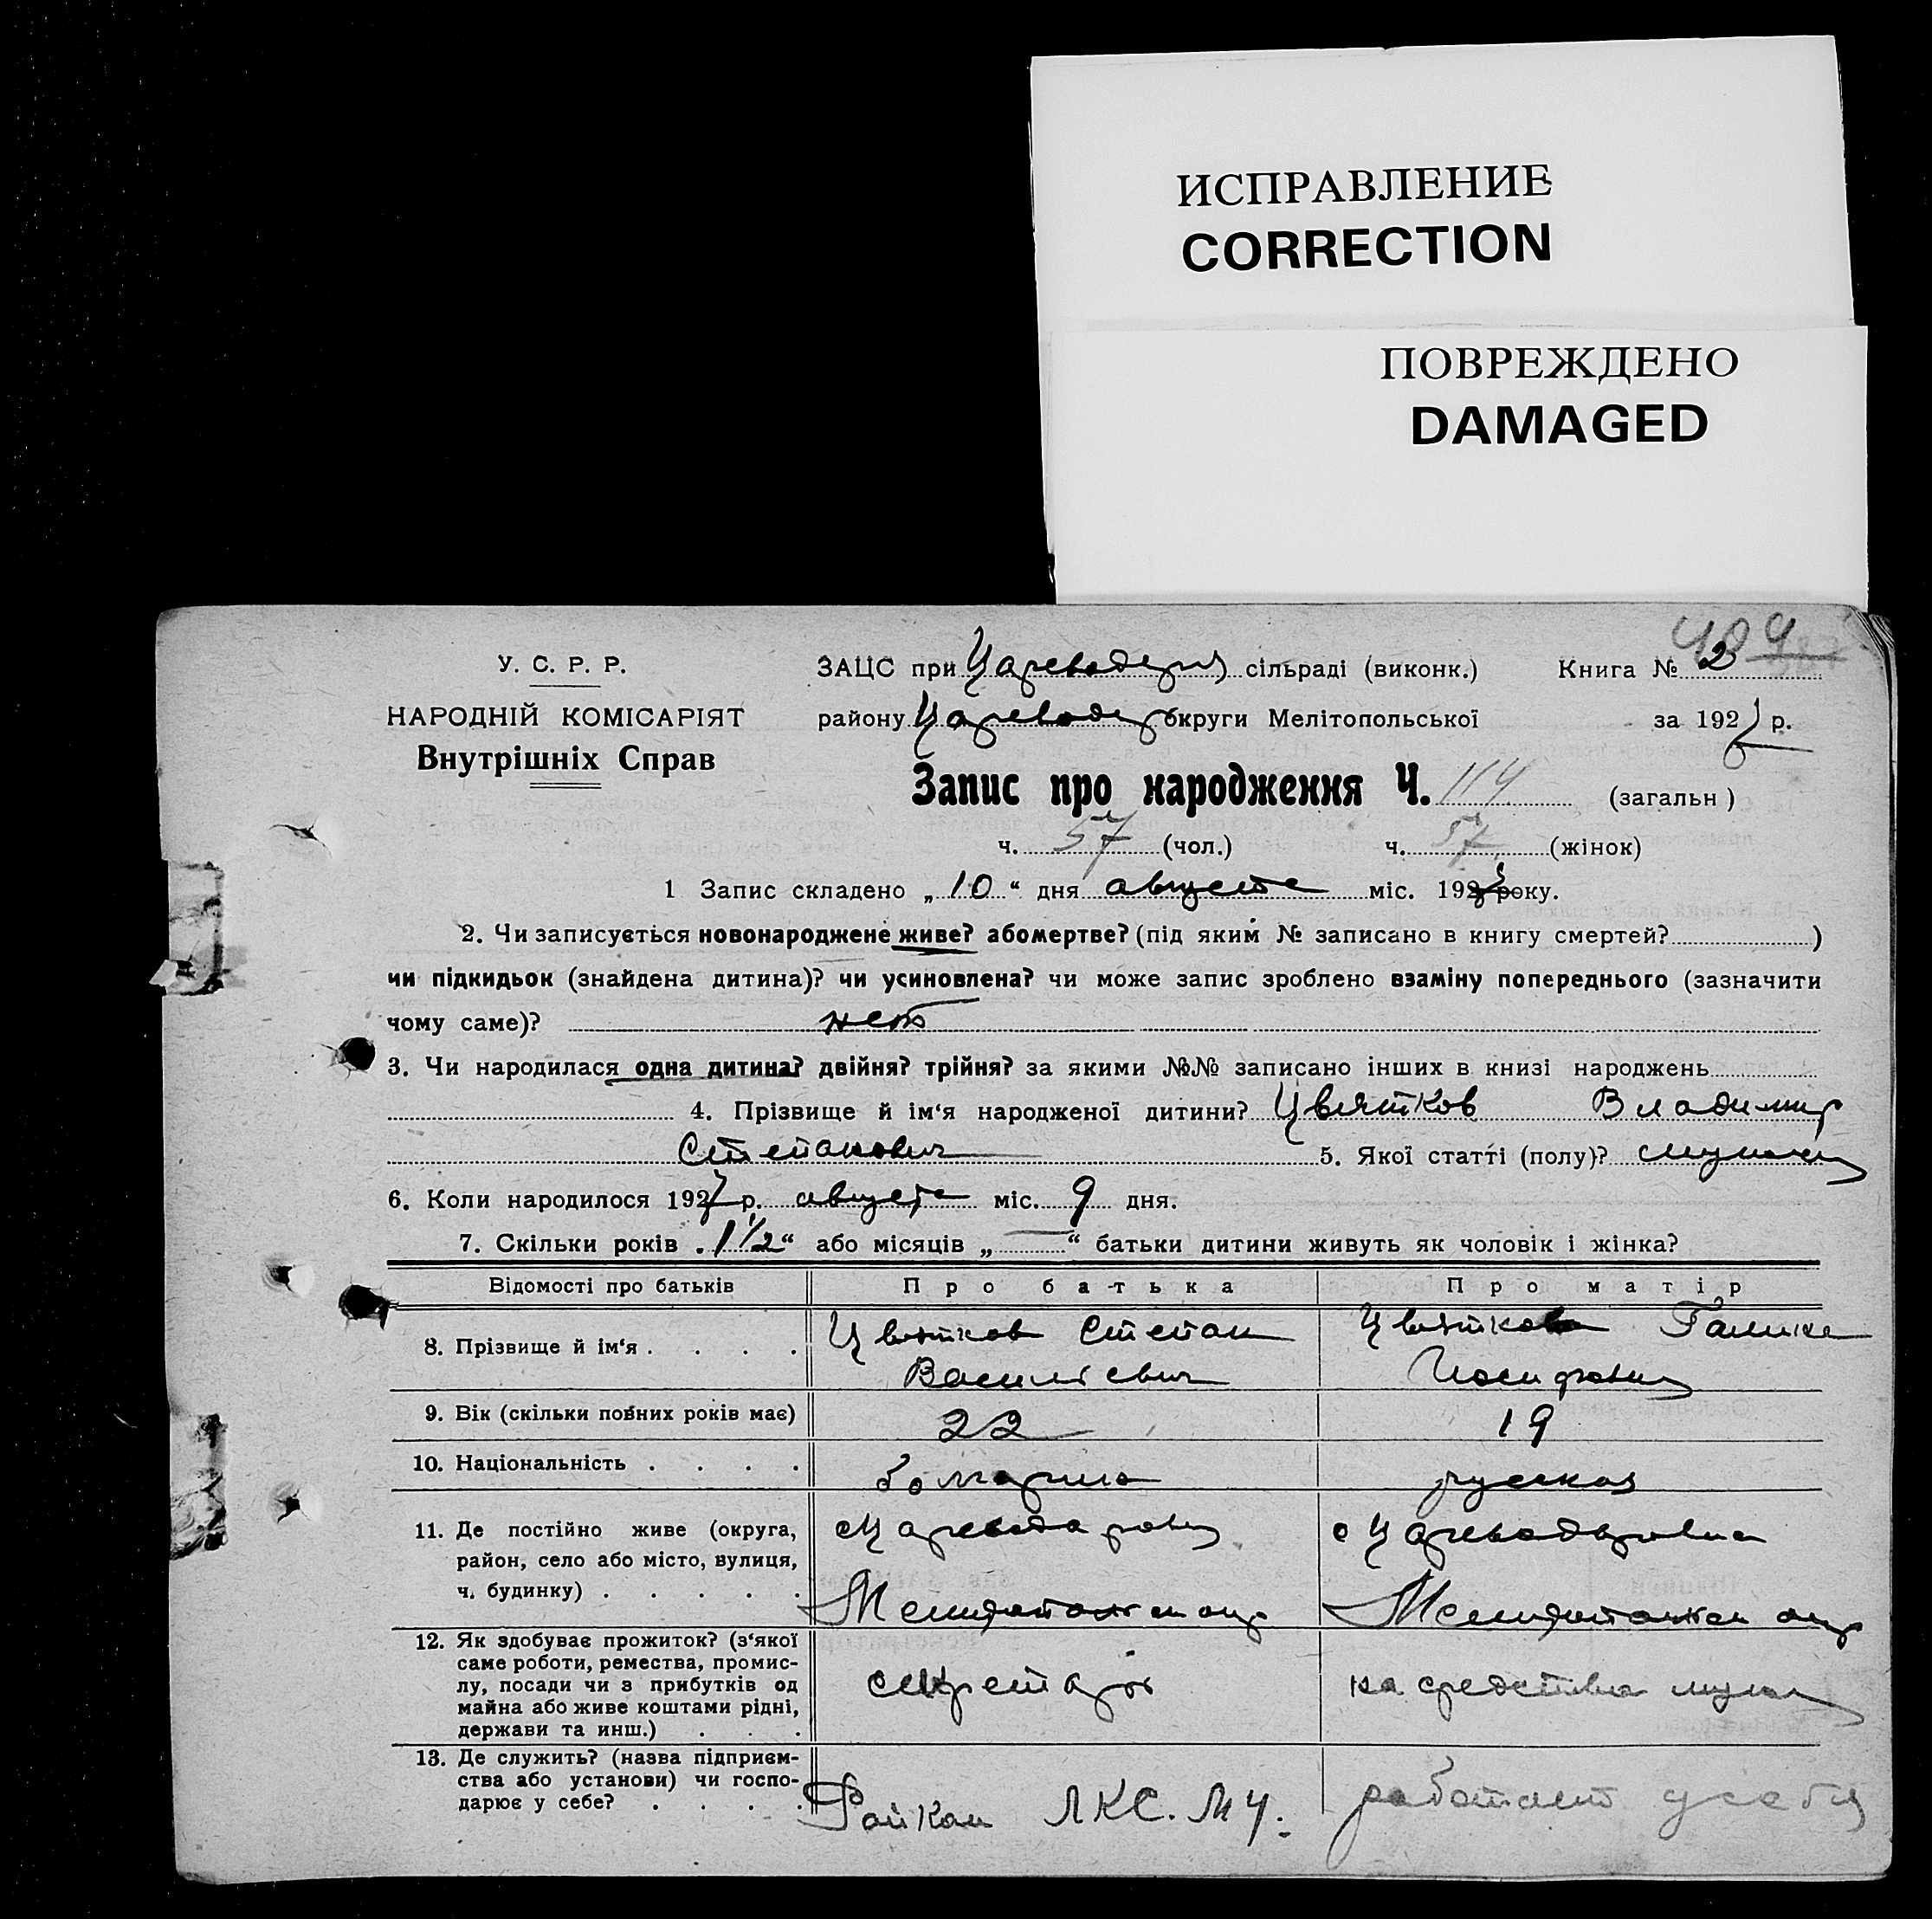 ИСПРАВЛЕНИЕ
CORRECTION
ПОВРЕЖДЕНО
DAMAGED
У. С. Р. Р.
НАРОДНІЙ КОМІСАРІЯТ
Внутрішніх Справ
ЗАЦС при сільраді (виконк.) Книга № 2
району округи Мелітопольської за 1927 р.
Запис про народження Ч. 114 (загальн )
ч. 57 (чол.) ч. 57 (жінок)
1 Запис складено „ 10 “ дня августа міс. 192 року.
2. Чи записується новонароджене живе? або мертве? (під яким № записано в книгу смертей? )
чи підкидьок (знайдена дитина)? чи усиновлена? чи може запис зроблено взаміну попереднього (зазначити
чому саме)? нет
3. Чи народилася одна дитина? двійня? трійня? за якими №№ записано інших в книзі народжень
4. Прізвище й ім‘я народженої дитини? Цвятков Владимир
Степанович 5. Якої статті (полу)?
6. Коли народилося 1927 р. августа міс. 9 дня.
7. Скільки років „ 1 1/2 “ або місяців „ — “ батьки дитини живуть як чоловік і жінка?
Відомості про батьків Про батька Про матір
8. Прізвище й ім‘я . . . . Цвятков Степан Цвяткова Галина
Васильевич
9. Вік (скільки повних років має) 22 19
10. Національність . . . . русская
11. Де постійно живе (округа,
район, село або місто, вулиця,
ч. будинку) . . . . .
12. Як здобуває прожиток? (з‘якої
саме роботи, ремества, промис-
лу, посади чи з прибутків од
майна або живе коштами рідні,
держави та инш.) . . .
секретарь на средства мужа
13. Де служить? (назва підприєм-
ства або установи) чи госпо-
дарює у себе? . . . .
Райком ЛКСМУ. работает у себя